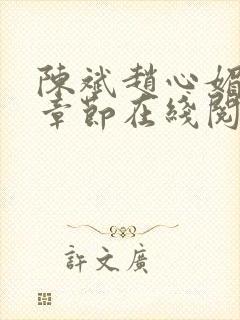 陳斌趙心媚
章節在綫閱
許文廣